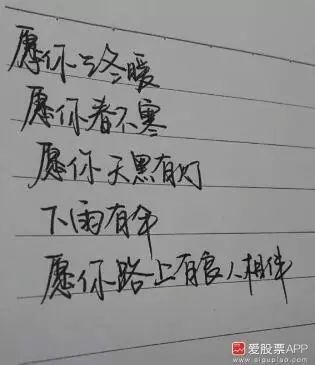 愿你三冬暖
愿你春不寒
愿你天黑有灯
下雨有伞
愿你路上有良人相伴
爱股票APP
www.aigupiao.com